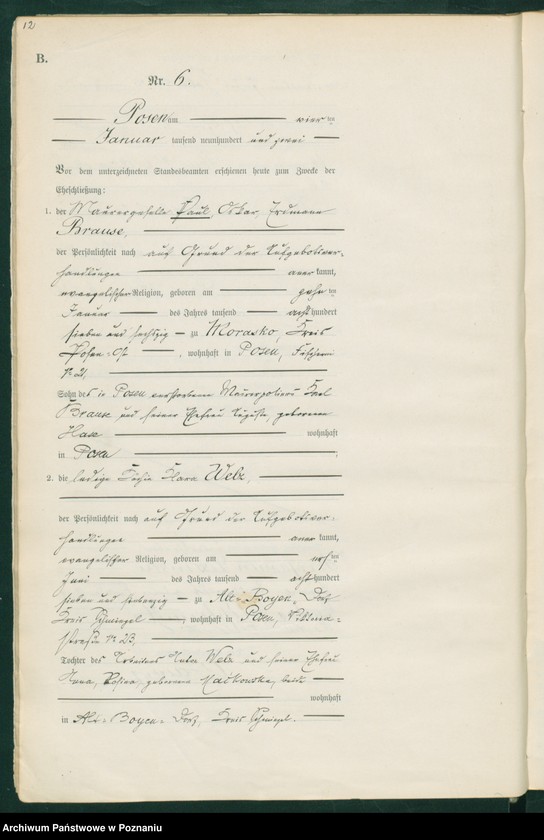 12
B.
Nr. 6.
Posen am vier ten
Januar tausend neunhundert und zwei
Vor dem unterzeichneten Standesbeamten erschienen heute zum Zwecke der
Eheschließung:
1. der Maurergeselle Paul, Oskar, Erdmann
Brause,
der Persönlichkeit nach auf Grund der Aufgebotsver-
handlungen anerkannt,
evangelischer Religion, geboren am zehn ten
Januar des Jahres tausend acht hundert
sieben und sechzig zu Morasko, Kreis
Posen-Ost, wohnhaft in Posen, Fischerei
Sohn des in Posen verstorbenen Maurerpoliers Karl
Brause und seiner Ehefrau Auguste geborenen
wohnhaft
in Posen ;
2. die ledige Köchin Klara Welz,
der Persönlichkeit nach auf Grund der Aufgebotsver-
handlungen anerkannt,
evangelischer Religion, geboren am ten
Juni des Jahres tausend acht hundert
sieben und siebenzig zu Alt-Boyen-Dorf
Kreis Schmiegel, wohnhaft in Posen, Viktoria-
straße N 23,
Tochter des Welz und seiner Ehefrau
Anna, Rosina, geborenen Maćkowska, beide
wohnhaft
in Alt-Boyen-Dorf, Kreis Schmiegel.
Archiwum Państwowe w Poznaniu